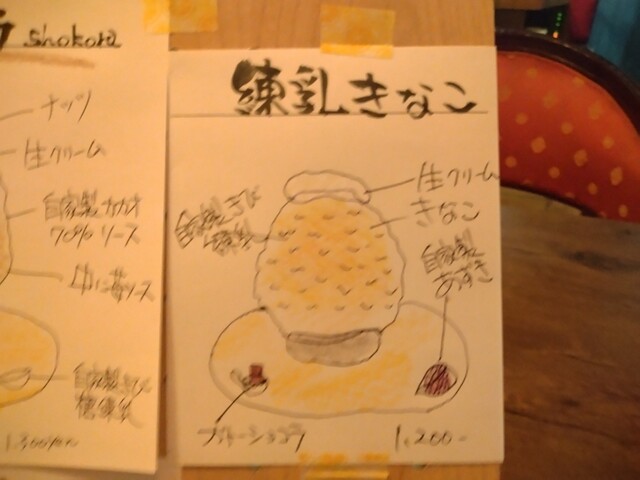 shokora
ナッツ
生クリーム
自家製カカオ
70%ソース
中に苺ソース
自家製きび
糖練乳
練乳きなこ
生クリーム
きなこ
自家製きび
糖練乳
自家製
あずき
1,200-